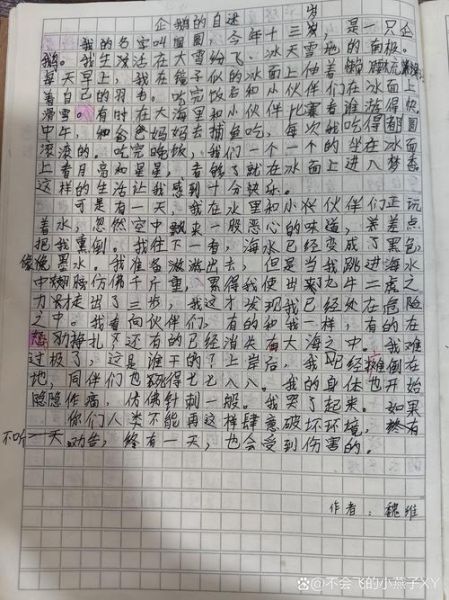 企鹅的自述
我的名字叫圆圆，今年十三岁，是一只企
鹅。我生活在大雪纷飞、冰天雪地的南极。
每天早上，我在镜子似的冰面上伸着懒腰，
着自己的羽毛。吃完饭后和小伙伴们在冰面上
滑雪。有时在大海里和小伙伴比赛看谁游得快
中午，和爸爸妈妈去捕鱼吃，每次我吃得都圆
滚滚的。吃完晚饭，我们一个一个的坐在冰面
上看月亮和星星，看够了就在冰面上进入梦乡
这样的生活让我感到十分快乐。
可是有一天，我在冰里和小伙伴们正玩
着水，忽然空中飘来一股恶心的味道，差差点
把我熏倒。我往下一看，海水已经变成了黑色，
像墨水。我准备游游出去，但是当我跳进海水
中翅膀仿佛千斤重，累得我使出九牛二虎之
力只走出了三步，我这才发现我已经处在危险
之中。我看向伙伴们，有的和我一样，有的在
劲挣扎，还有的已经消失在大海之中。我难
过极了，这是谁干的？上岸后，我已经瘫倒在
地，同伴们也玩得七七八八。我的身体也开始
隐隐作痛，仿佛针刺一般。我哭了起来。如果
你们人类不能再这样肆意破坏环境，终有
不听一天劝告，终有一天，也会受到伤害的。
作者：魏维
@不会飞的小燕子XY